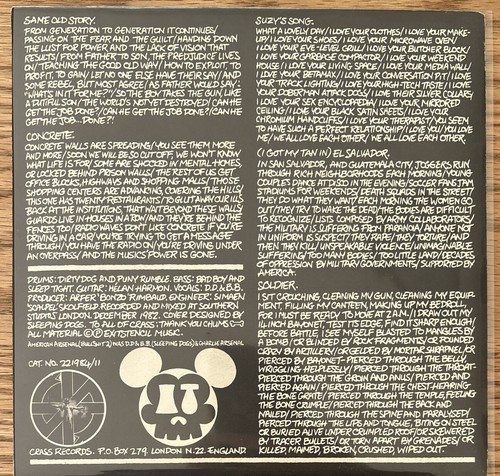 SAME OLD STORY.
FROM GENERATION TO GENERATION IT CONTINUES/
PASSING ON THE FEAR AND THE GUILT/HANDING DOWN
THE LUST FOR POWER AND THE LACK OF VISION THAT
RESULTS/FROM FATHER TO SON, THE PREJUDICE LIVES
ON/TEACHING THE GOOD OLD WAY/HOW TO EXPLOIT, TO
PROFIT, TO GAIN/LET NO ONE ELSE HAVE THEIR SAY/AND
SOME REBEL, BUT MOST AGREE/AS FATHER WOULD SAY:
"WHAT'S IN IT FOR ME?"/SO THE BOY TAKES THE GUN LIKE
A DUTIFUL SON/THE WORLD'S NOT YET DESTROYED/CAN HE
GET THE JOB DONE?/CAN HE GET THE JOB DONE?/CAN HE
GET THE JOB DONE?!
CONCRETE.
CONCRETE WALLS ARE SPREADING/YOU SEE THEM MORE
AND MORE/SOON WE WILL BE SO CUT OFF, WE WON'T KNOW
WHAT LIFE IS FOR/SOME ARE STOCKED IN MENTAL HOMES,
OR LOCKED BEHIND PRISON WALLS/THE REST OF US GET
OFFICE BLOCKS, HIGHWAYS AND SHOPPING MALLS/THOSE
SHOPPING CENTERS ARE ADVANCING, COVERING THE HILLS/
THIS ONE HAS TWENTY RESTAURANTS/TO GLUT AWAY OUR ILLS
BACK AT THE INSTITUTIONS, THAT WAIT BEYOND THESE WALLS
GUARDS LIVE IN HOUSES IN A ROW/AND THEY'RE BEHIND THE
FENCES TOO/RADIO WAVES DON'T LIKE CONCRETE IF YOU'RE
DRIVING IN A CAR/YOU'RE TRYING TO GET A MESSAGE
THROUGH/YOU HAVE THE RADIO ON/YOU'RE DRIVING UNDER
AN OVERPASS/AND THE MUSIC'S POWER IS GONE.
DRUMS: DIRTY DOG AND PUNY RUMBLE. BASS: BAD BOY AND
SLEEP TIGHT. GUITAR: HELAN HARMON. VOCALS: D.D. & B.B.
PRODUCER: ARFER BONZO RIMBAUD. ENGINEER: SIMAEN
SCHMPEL SKOLFIELD. RECORDED AND MIXED AT SOUTHERN
STUDIOS LONDON. DECEMBER 1982. COVER DESIGNED BY
SLEEPING DOGS. TO ALL OF CRASS: THANK YOU CHUMS
ALL MATERIAL © ℗ EXITSTENCIL MUSIC.
AMERICAN ARSENAL (BULLSHIT 2) WAS D.D & B.B. (SLEEPING DOGS) & CHARLIE ARSENAL
CAT. NO. 221984/11
CRASS RECORDS. P.O. BOX 279. LONDON N.22. ENGLAND.
SUZY'S SONG.
WHAT A LOVELY DAY/I LOVE YOUR CLOTHES/I LOVE YOUR MAKE-
UP/I LOVE YOUR SHOES/I LOVE YOUR MICROWAVE OVEN/
I LOVE YOUR EYE-LEVEL GRILL/I LOVE YOUR BUTCHER BLOCK/
I LOVE YOUR GARBAGE COMPACTOR/I LOVE YOUR WEEKEND
HOUSE/I LOVE YOUR LIVING SPACE/I LOVE YOUR MEDIA WALL/
I LOVE YOUR BETAMAX/I LOVE YOUR CONVERSATION PIT/I LOVE
YOUR TRACK LIGHTING/I LOVE YOUR HIGH-TECH TASTE/I LOVE
YOUR DOBERMAN ATTACK DOGS/I LOVE THEIR SILVER COLLARS
/I LOVE YOUR SEX ENCYCLOPEDIA/I LOVE YOUR MIRRORED
CEILING/I LOVE YOUR BLACK SATIN SHEETS/I LOVE YOUR
CHROMIUM HANDCUFFS/I LOVE YOUR THERAPIST/YOU SEEM
TO HAVE SUCH A PERFECT RELATIONSHIP/I LOVE YOU/YOU LOVE
ME/WE ALL LOVE EACH OTHER/WE ALL LOVE EACH OTHER.
(I GOT MY TAN IN) EL SALVADOR.
IN SAN SALVADOR, AND GUATEMALA CITY, JOGGERS RUN
THROUGH RICH NEIGHBORHOODS EACH MORNING/YOUNG
COUPLES DANCE AT DISCO IN THE EVENING/SOCCER FANS JAM
STADIUMS FOR WEEKENDS/DEATH SQUADS IN THE STREET/
THEY DO WHAT THEY WANT/EACH MORNING THE WOMEN GO
OUT/THEY TRY TO WAKE THE DEAD/THE BODIES ARE DIFFICULT
TO RECOGNIZE/LISTS COMPOSED BY ARMY COLLABORATORS/
THE MILITARY IS SUFFERING FROM PARANOIA/ANYONE NOT
IN UNIFORM IS SUSPECT/THEY RAPE/THEY TORTURE/AND
THEN THEY KILL/UNSPEAKABLE VIOLENCE/UNIMAGINABLE
SUFFERING/TOO MANY BODIES/TOO LITTLE LAND/DECADES
OF OPPRESSION BY MILITARY GOVERNMENTS/SUPPORTED BY
AMERICA.
SOLDIER.
I SIT CROUCHING, CLEANING MY GUN, CLEANING MY EQUIP-
MENT, FILLING MY CANTEEN, MAKING UP MY BEDROLL,
FOR I MUST BE READY TO MOVE AT 2 A.M./I DRAW OUT MY
11 INCH BAYONET, TEST ITS EDGE, FIND IT SHARP ENOUGH/
BEFORE BATTLE I SEE MYSELF BLASTED TO MANGLES BY
A BOMB/OR BLINDED BY ROCK FRAGMENTS/OR POUNDED
CRAZY BY ARTILLERY/OR GELDED BY MORTAR SHRAPNEL/OR
PIERCED BY A BAYONET-PIERCED THROUGH THE BELLY/
WRIGGLING HELPLESSLY/PIERCED THROUGH THE THROAT-
PIERCED THROUGH THE GROIN AND ANUS/PIERCED AND
PIERCED AGAIN/PIERCED THROUGH THE CHEST-HEARING
THE BONE GRATE/PIERCED THROUGH THE TEMPLE, FEELING
THE BONE CRUMPLE/PIERCED THROUGH THE BACK AND
NAILED/PIERCED THROUGH THE SPINE AND PARALYSED/
PIERCED THROUGH THE LIPS AND TONGUE, BITING ON STEEL
OR BURIED ALIVE UNDER CRUMPLED ROOF/OR SEVERED
BY TRACER BULLETS/OR TORN APART BY GRENADES/OR
KILLED MAIMED, BROKEN, CRUSHED, WIPED OUT.